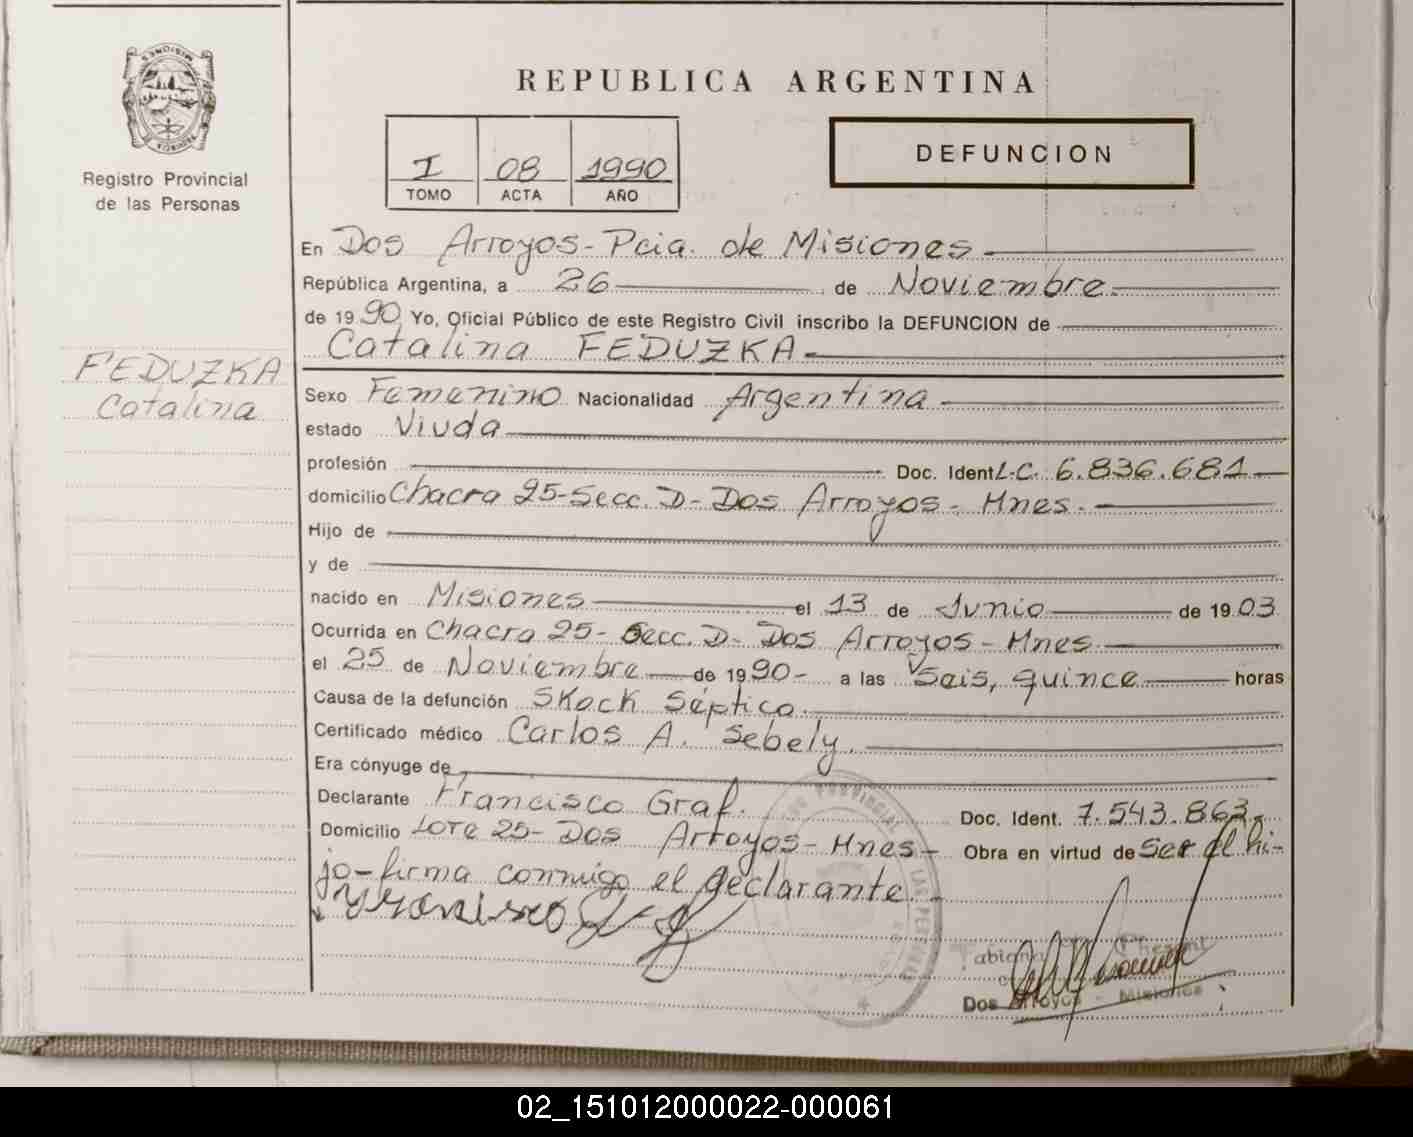 MISIONES
Registro Provincial
de las Personas
FEDUZKA
Catalina
REPUBLICA ARGENTINA
I 08 1990
TOMO ACTA AÑO
DEFUNCION
En Dos Arroyos-Pcia. de Misiones
República Argentina, a 26 de Noviembre.
de 1990 Yo, Oficial Público de este Registro Civil inscribo la DEFUNCION de
Catalina FEDUZKA
Sexo Femenino Nacionalidad Argentina
estado Viuda
profesión Doc. Ident. L.C. 6.836.681
domicilio Chacra 25-Secc. D-Dos Arroyos-Mnes.
Hijo de
y de
nacido en Misiones el 13 de Junio de 1903
Ocurrida en Chacra 25- Secc. D- Dos Arroyos-Mnes
el 25 de Noviembre de 1990- a las Seis, quince horas
Causa de la defunción Skock Séptico.
Certificado médico Carlos A. Sebely.
Era cónyuge de
Declarante Francisco Graf. Doc. Ident. 7.543.863.
Domicilio Lote 25-Dos Arroyos-Mnes- Obra en virtud de Ser el hi-
jo-firma conmigo el declarante.-
Dos Arroyos - Misiones
02_151012000022-000061